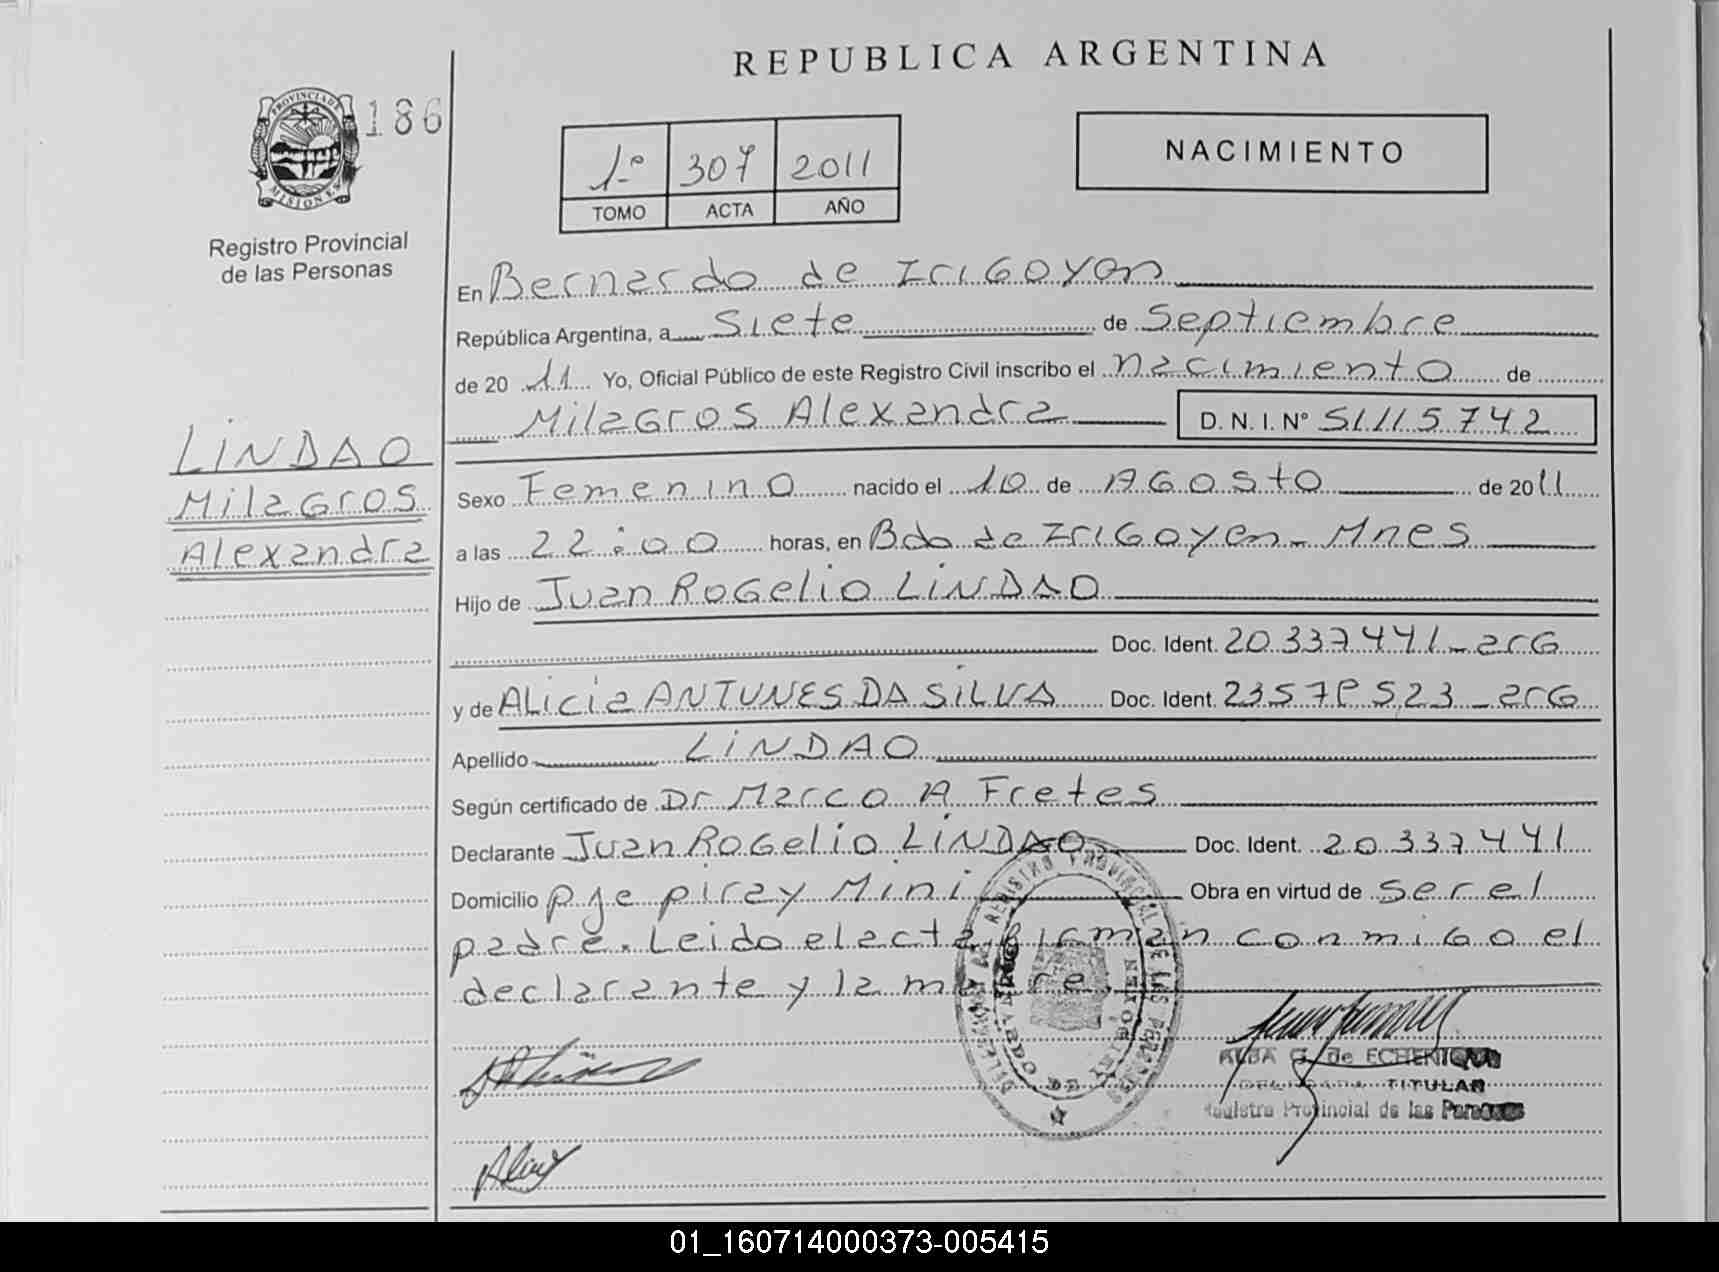 REPUBLICA ARGENTINA
PROVINCIA DE MISIONES
186
Registro Provincial
de las Personas
1º 307 2011
TOMO ACTA AÑO
NACIMIENTO
En Bernardo de Irigoyen
República Argentina, a Siete de Septiembre
de 2011 Yo, Oficial Público de este Registro Civil inscribo el nacimiento de
Milagros Alexandra D. N. I. Nº 51115742
LINDAO
Milagros
Alexandra
Sexo Femenino nacido el 10 de Agosto de 2011
a las 22:00 horas, en Bdo de Irigoyen - Mnes
Hijo de Juan Rogelio LINDAO
Doc. Ident. 20337441 - arg
y de Alicia ANTUNES DA SILVA Doc. Ident. - arg
Apellido LINDAO
Según certificado de Dr Marco A Fretes
Declarante Juan Rogelio LINDAO Doc. Ident. 20337441
Domicilio pje piray Mini Obra en virtud de ser el
padre. Leido el acta firman conmigo el
declarante y la madre.
REGISTRO PROVINCIAL DE LAS PERSONAS
ALBA G. de ECHENIQUE
DELEGADA TITULAR
Registro Provincial de las Personas
01_160714000373-005415